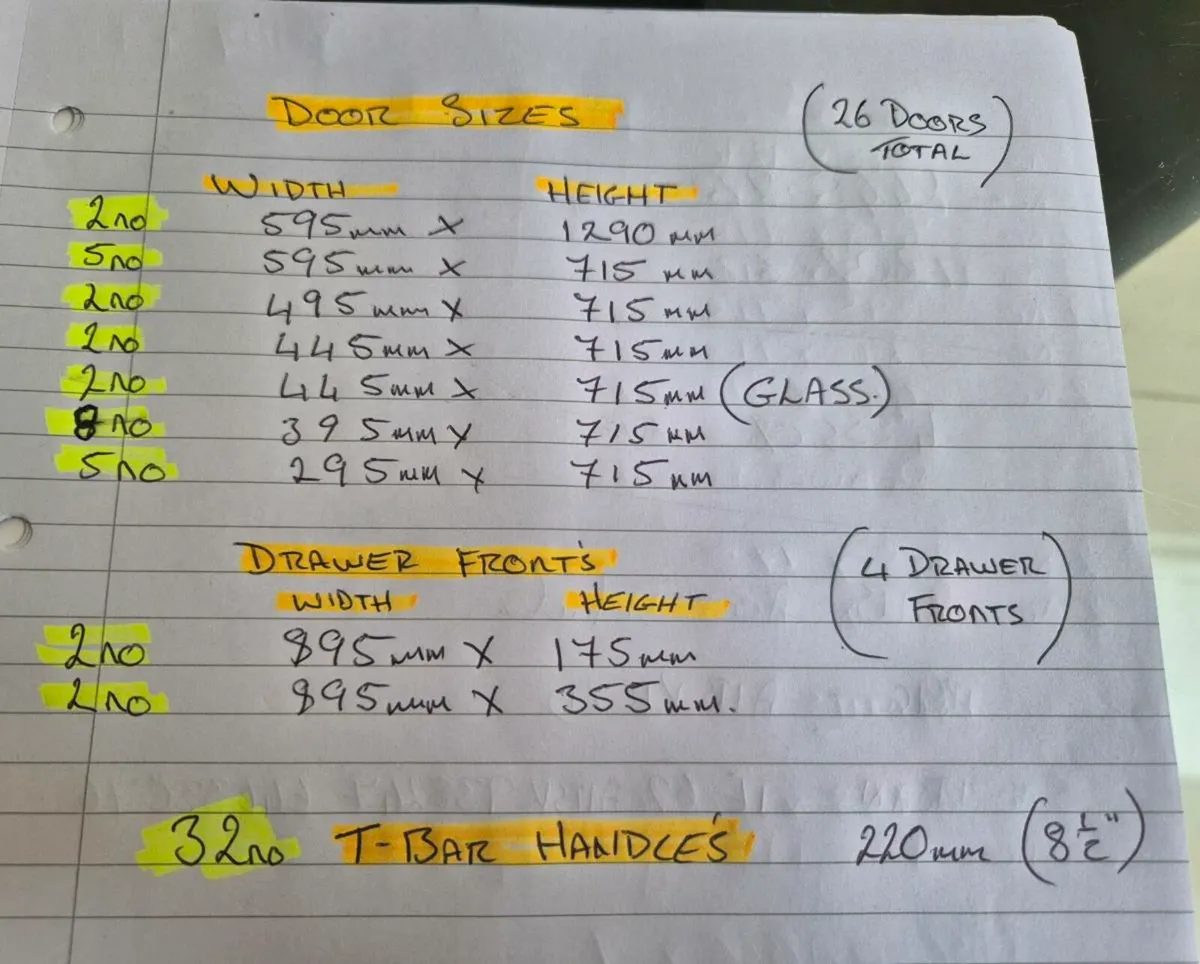 DOOR SIZES (26 DOORS
TOTAL)
WIDTH HEIGHT
2no 595mm X 1290mm
5no 595mm X 715mm
2no 495mm X 715mm
2no 445mm X 715mm
2no 445mm X 715mm (GLASS.)
8no 395mm X 715mm
5no 295mm X 715mm
DRAWER FRONT'S (4 DRAWER
FRONTS)
WIDTH HEIGHT
2no 895mm X 175mm
2no 895mm X 355mm.
32no T-BAR HANDLE'S 220mm (8½")